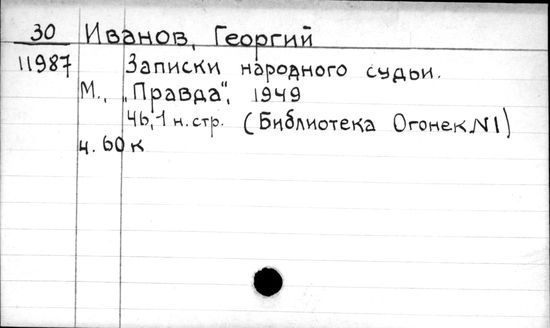 30 Иванов, Георгий
11987 Записки народного судьи.
М., „Правда", 1949
46,1 н.стр. (Библиотека Огонек N1)
ч. 60 к